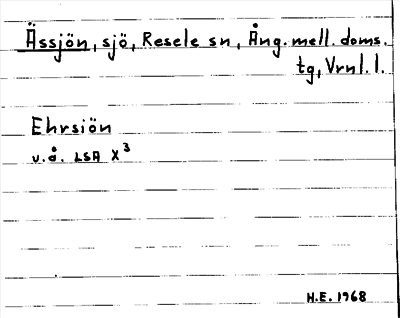 Ässjön, sjö, Resele sn, Ång. mell. doms.
tg, Vrnl. l.
Ehrsiön
u.å. LSA X3
H.E. 1968